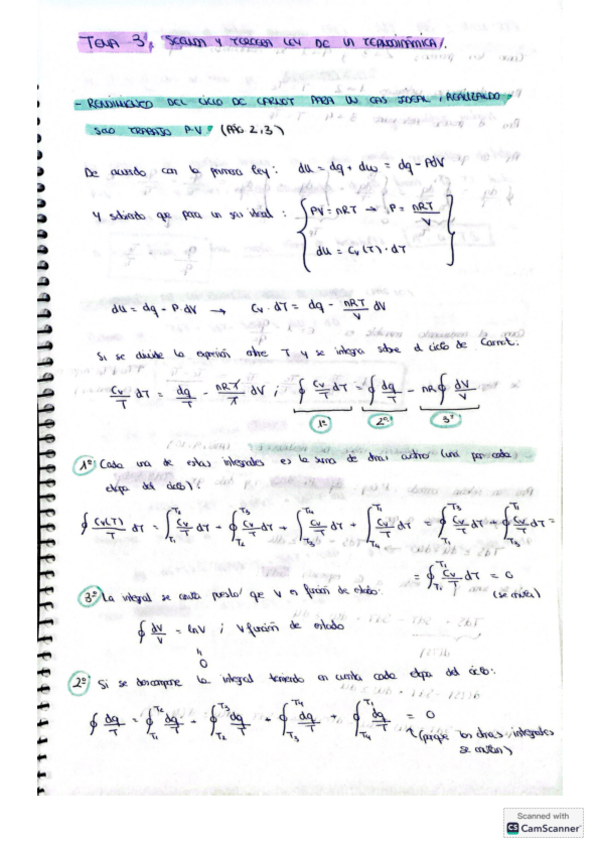 TEMA 3, SEGUNDA Y TERCERA LEY DE LA TERMODINÁMICA/.
- RENDIMIENTO DEL CICLO DE CARNOT PARA UN GAS IDEAL, REALIZANDO
SOLO TRABAJO P-V. (PÁG. 2,3)
De acuerdo con la primera ley: du = dq + dw = dq - PdV
Y sabiendo que para un gas ideal: { PV = nRT → P = nRT/V
du = Cv(T)·dT }
du = dq - P·dV → Cv·dT = dq - nRT/V dV
Si se divide la expresión entre T y se integra sobre el ciclo de Carnot.
Cv/T dT = dq/T - nRT/T dV ; ∮ Cv/T dT = ∮ dq/T - nR ∮ dV/V
1º 2º 3º
1º Cada una de estas integrales es la suma de otras cuatro (una por cada
etapa del ciclo):
∮ Cv(T)/T dT = ∫T1T2 Cv/T dT + ∮T2T3 Cv/T dT + ∫T3T4 Cv/T dT + ∫T4T1 Cv/T dT = ∮ Cv/T dT + ∮ Cv/T dT =
= ∮ Cv/T dT = 0
(se anula)
3º La integral se anula puesto que V es función de estado:
∮ dV/V = lnV ; V función de estado
0
2º Si se descompone la integral teniendo en cuenta cada etapa del ciclo:
∮ dq/T = ∮T1T2 dq/T + ∮T2T3 dq/T + ∮T3T4 dq/T + ∮T4T1 dq/T = 0
(porque las otras integrales
se anulan)
Scanned with
CS CamScanner